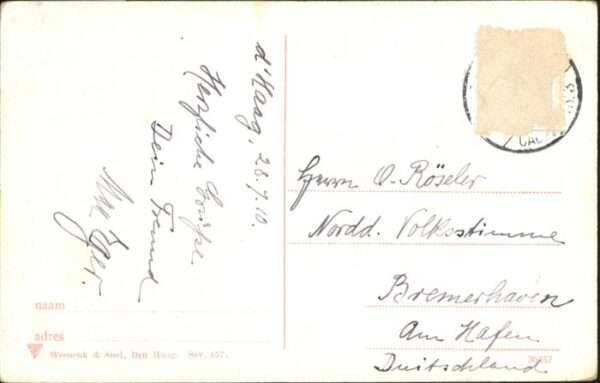 d'Haag, 26.7.10.
Herzliche Grüße
Dein Freund
Herrn O. Röseler
Nordd. Volksstimme
Bremerhaven
Am Hafen
Duitschland
naam
adres
Weenenk & Snel, Den Haag. Ser. 157.